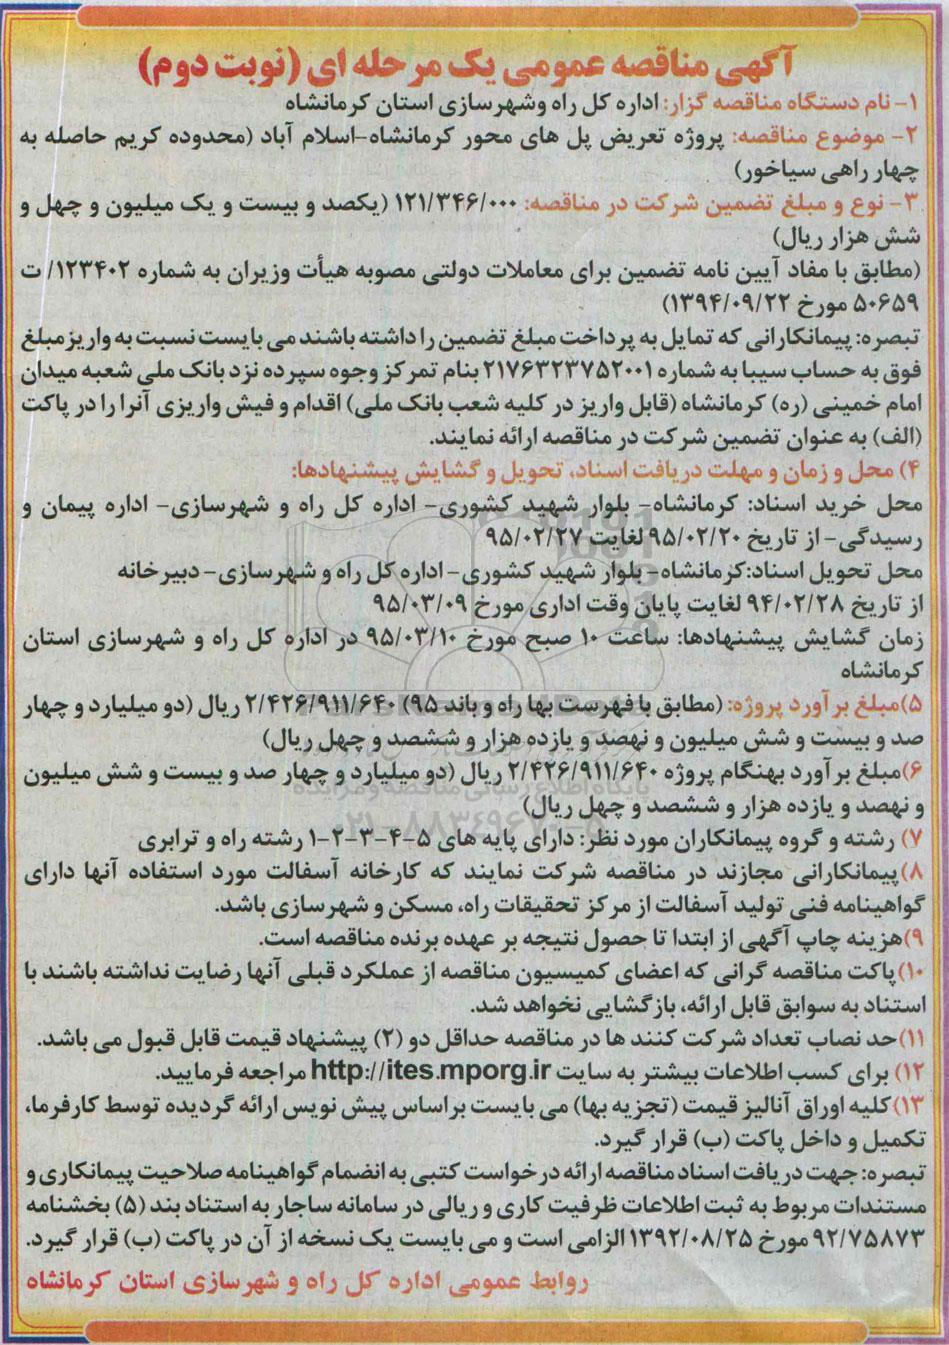 آگهی مناقصه عمومی یک مرحله ای (نوبت دوم)
۱- نام دستگاه مناقصه گزار: اداره کل راه وشهرسازی استان کرمانشاه
۲- موضوع مناقصه: پروژه تعریض پل های محور کرمانشاه-اسلام آباد (محدوده کریم حاصله به
چهار راهی سیاخور)
۳- نوع و مبلغ تضمین شرکت در مناقصه: ۱۲۱/۳۴۶/۰۰۰ (یکصد و بیست و یک میلیون و چهل و
شش هزار ریال)
(مطابق با مفاد آیین نامه تضمین برای معاملات دولتی مصوبه هیأت وزیران به شماره ۱۲۳۴۰۲/ ت
۵۰۶۵۹ مورخ ۱۳۹۴/۰۹/۲۲)
تبصره: پیمانکارانی که تمایل به پرداخت مبلغ تضمین را داشته باشند می بایست نسبت به واریز مبلغ
فوق به حساب سیبا به شماره ۲۱۷۶۳۲۳۷۵۲۰۰۱ بنام تمرکز وجوه سپرده نزد بانک ملی شعبه میدان
امام خمینی (ره) کرمانشاه (قابل واریز در کلیه شعب بانک ملی) اقدام و فیش واریزی آنرا را در پاکت
(الف) به عنوان تضمین شرکت در مناقصه ارائه نمایند.
۴) محل و زمان و مهلت دریافت اسناد، تحویل و گشایش پیشنهادها:
محل خرید اسناد: کرمانشاه- بلوار شهید کشوری- اداره کل راه و شهرسازی- اداره پیمان و
رسیدگی- از تاریخ ۹۵/۰۲/۲۰ لغایت ۹۵/۰۲/۲۷
محل تحویل اسناد:کرمانشاه- بلوار شهید کشوری- اداره کل راه و شهرسازی- دبیرخانه
از تاریخ ۹۴/۰۲/۲۸ لغایت پایان وقت اداری مورخ ۹۵/۰۳/۰۹
زمان گشایش پیشنهادها: ساعت ۱۰ صبح مورخ ۹۵/۰۳/۱۰ در اداره کل راه و شهرسازی استان
کرمانشاه
۵)مبلغ برآورد پروژه: (مطابق با فهرست بها راه و باند ۹۵) ۲/۴۲۶/۹۱۱/۶۴۰ ریال (دو میلیارد و چهار
صد و بیست و شش میلیون و نهصد و یازده هزار و ششصد و چهل ریال)
۶)مبلغ برآورد بهنگام پروژه ۲/۴۲۶/۹۱۱/۶۴۰ ریال (دو میلیارد و چهار صد و بیست و شش میلیون
و نهصد و یازده هزار و ششصد و چهل ریال)
۷) رشته و گروه پیمانکاران مورد نظر: دارای پایه های ۵-۴-۳-۲-۱ رشته راه و ترابری
۸)پیمانکارانی مجازند در مناقصه شرکت نمایند که کارخانه آسفالت مورد استفاده آنها دارای
گواهینامه فنی تولید آسفالت از مرکز تحقیقات راه، مسکن و شهرسازی باشد.
۹)هزینه چاپ آگهی از ابتدا تا حصول نتیجه بر عهده برنده مناقصه است.
۱۰)پاکت مناقصه گرانی که اعضای کمیسیون مناقصه از عملکرد قبلی آنها رضایت نداشته باشند با
استناد به سوابق قابل ارائه، بازگشایی نخواهد شد.
۱۱)حد نصاب تعداد شرکت کنند ها در مناقصه حداقل دو (۲) پیشنهاد قیمت قابل قبول می باشد.
۱۲) برای کسب اطلاعات بیشتر به سایت http://ites.mporg.ir مراجعه فرمایید.
۱۳)کلیه اوراق آنالیز قیمت (تجزیه بها) می بایست براساس پیش نویس ارائه گردیده توسط کارفرما،
تکمیل و داخل پاکت (ب) قرار گیرد.
تبصره: جهت دریافت اسناد مناقصه ارائه درخواست کتبی به انضمام گواهینامه صلاحیت پیمانکاری و
مستندات مربوط به ثبت اطلاعات ظرفیت کاری و ریالی در سامانه ساجار به استناد بند (۵) بخشنامه
۹۲/۷۵۸۷۳ مورخ ۱۳۹۲/۰۸/۲۵ الزامی است و می بایست یک نسخه از آن در پاکت (ب) قرار گیرد.
روابط عمومی اداره کل راه و شهرسازی استان کرمانشاه